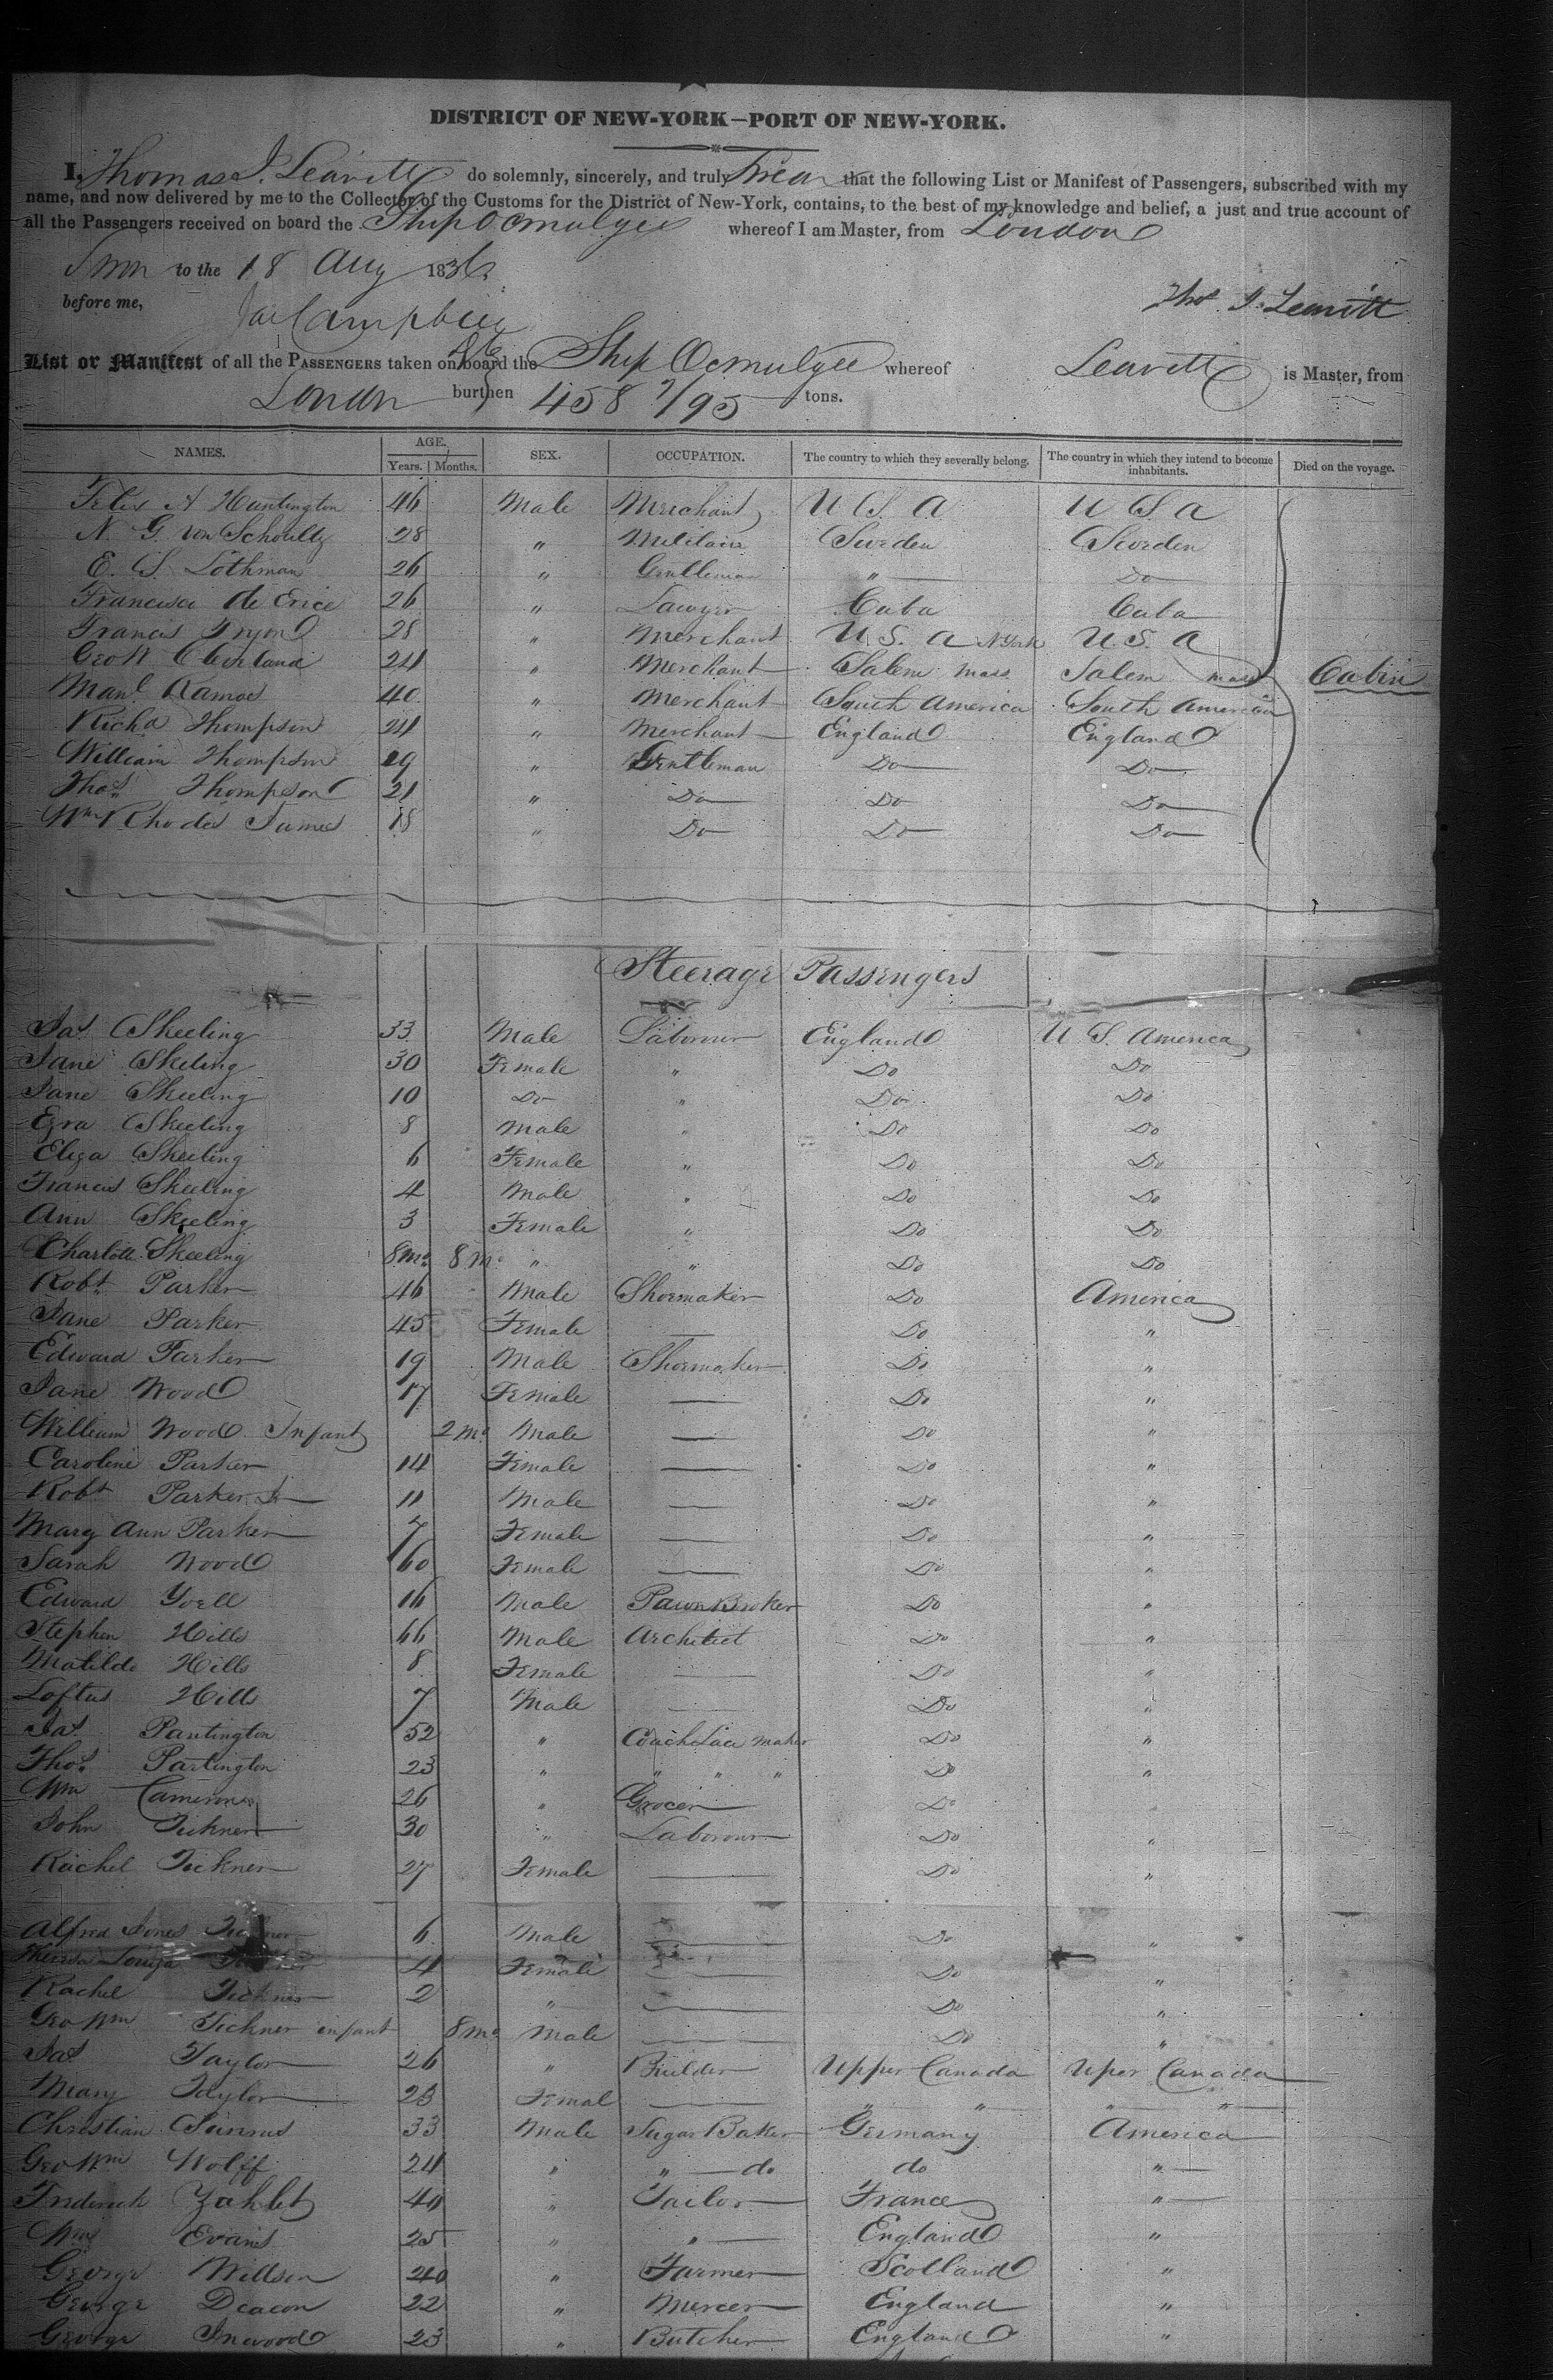 DISTRICT OF NEW-YORK—PORT OF NEW-YORK.
I, Thomas J. Leavitt do solemnly, sincerely, and truly Swear that the following List or Manifest of Passengers, subscribed with my
name, and now delivered by me to the Collector of the Customs for the District of New-York, contains, to the best of my knowledge and belief, a just and true account of
all the Passengers received on board the Ship Ocmulgee whereof I am Master, from London
Swn to the 18 Aug 1836
before me, Campbell Thos. J. Leavitt
List or Manifest of all the PASSENGERS taken on board the Ship Ocmulgee whereof Leavitt is Master, from
London burthen 458 7/95 tons.
NAMES. AGE. Years. Months. SEX. OCCUPATION. The country to which they severally belong. The country in which they intend to become inhabitants. Died on the voyage.
A Huntington 46 Male Merchant U S. A. U S A
N. G. von Schoultz 28 " Militair Sweden Sweden
E. S. Lothman 26 " Gentleman " Do
Francisco de Erice 26 " Lawyer Cuba Cuba
Francis Tryon 28 " Merchant U. S. A N York U. S. A
Geo W Cleveland 24 " Merchant Salem Mass Salem Mass Cabin
Manl. Ramos 40 " Merchant South America South America
Richd Thompson 24 " Merchant England England
William Thompson 19 " Gentleman Do Do
Thos. Thompson 21 " Do Do Do
Wm Rhodes James 18 " Do Do Do
Steerage Passengers
Jas Skeeling 33 Male Labourer England U S. America
Jane Skeling 30 Female " Do Do
Jane Skeeling 10 Do " Do Do
Ezra Skeeling 8 Male " Do Do
Eliza Skeeling 6 Female " Do Do
Francis Skeeling 4 Male " Do Do
Ann Skeeling 3 Female " Do Do
Charlotte Skeeling 8 Mo. 8 Mo. " " Do Do
Robt. Parker 46 Male Shoemaker Do America
Jane Parker 45 Female — Do "
Edward Parker 19 Male Shoemaker Do "
Jane Wood 17 Female — Do "
William Wood Infant 2 Mo. Male — Do "
Caroline Parker 14 Female — Do "
Robt Parker Jr 11 Male — Do "
Mary Ann Parker 7 Female — Do "
Sarah Wood 60 Female — Do "
Edward Yoell 16 Male Pawn Broker Do "
Stephen Hills 66 Male Architect Do "
Matilda Hills 8 Female — Do "
Loftus Hills 7 Male — Do "
Jas. Partington 52 " Coach Lace Maker Do "
Thos. Partington 23 " " " " Do "
Wm Cameron 26 " Grocer Do
John Tickner 30 " Labourer Do "
Rachel Tickner 27 Female — Do "
Alfred Jones Tickner 6 Male — Do "
Louiza 4 Female — Do "
Rachel Tickner 2 " — Do "
Geo Wm Tickner infant 8 Mo Male — Do "
Jas Taylor 26 " Builder Upper Canada Uper Canada
Mary Taylor 23 Femal — " " " "
Christian 33 Male Sugar Baker Germany America
Geo Wm Wolff 24 " " do do "
Frederick 40 " Tailor France "
Wm Evans 25 " " England "
George Willson 20 " Farmer Scotland "
George Deacon 22 " Mercer England "
George Inwood 23 " Butcher England "